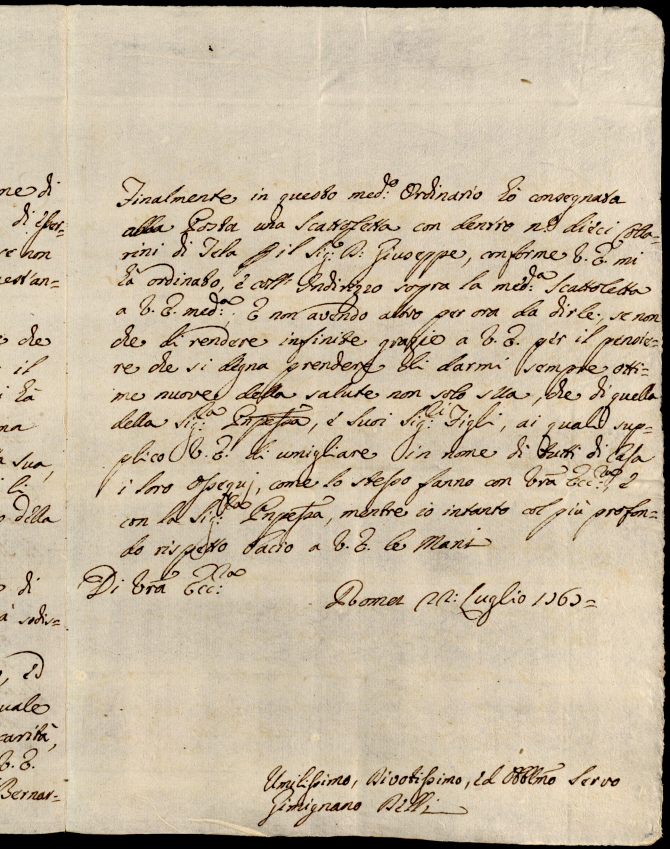 ne di
di esser-
se non
quest'an-
e che
il
i hà
na
a sua,
i li
o della
di
a' sodis-
ed
uale
carità,
V. E.
Bernar-
Finalmente in questo med:mo Ordinario hò consegnata
alla Posta una Scattoletta con dentro n:o dieci
rini di Tela p il Sig: D: Giuseppe, conforme V. E. mi
hà ordinato, è coll' Indirizzo sopra la med:a Scattoletta
a V. E. med:a: E non avendo altro per ora da dirle, se non
che di rendere infinite grazie a V. E. per il pensie-
re che si degna prendere di darmi sempre otti-
me nuove della salute non solo sua, che di quella
della Sig:ra Pnpessa, è suoi Sig:ri Figli, ai quali sup-
plico V. E. di umigliare in nome di tutti di Casa
i loro Ossequj, come lo stesso fanno con Vra Ecc:za, è
con la Sig:ra Pnpessa, mentre io intanto col più profon-
do rispetto bacio a V. E. le Mani
Di Vra Ecc:za
Roma 22: Luglio 1767=
Umilissimo, Divotissimo, ed Obblmo Servo
Gimignano Belli